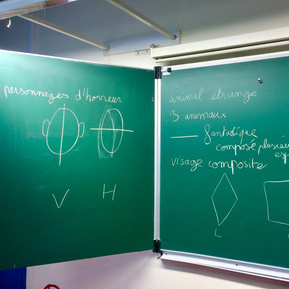 personnages d'horreur
V H
animal étrange
3 animaux
— fantastique
composé plusieurs
visage composite
L